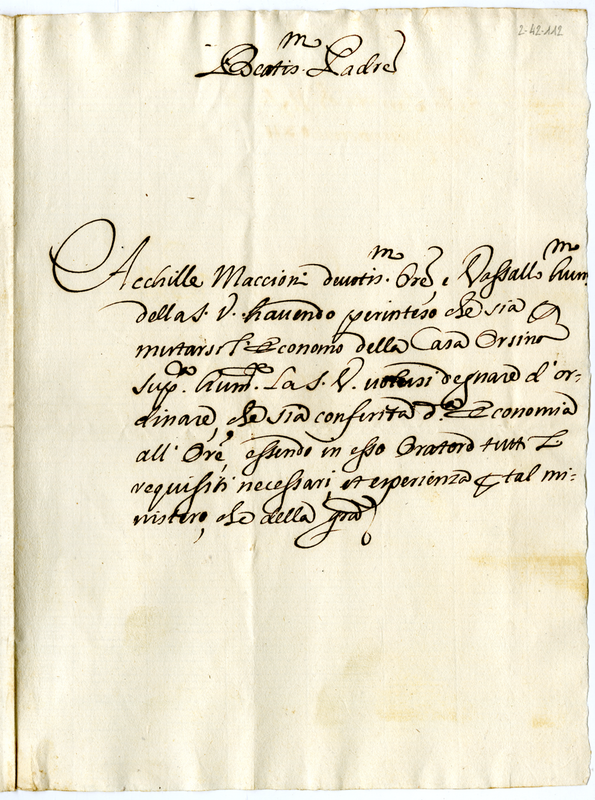 2-42-112
Beatis.mo Padre
Acchille Maccioni devotis.mo Ore, e Vassallo hum.mo
della S. V. havendo perinteso che sia p
mutarsi l'Economo della Casa Orsina
sup.ca hum.te La S. V. volersi degnare d'or-
dinare, che sia conferita d.a Economia
all' Ore, essendo in esso Oratore tutti l
requisiti necessari, et esperienza p tal mi-
nistero, che della gra